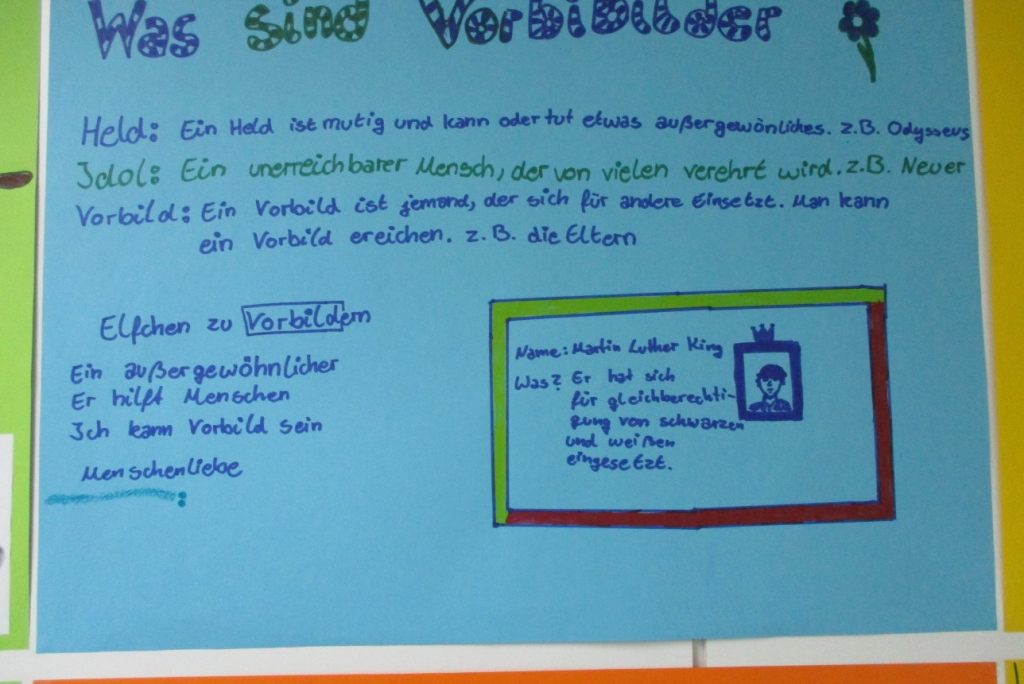 Was sind Vorbilder
Held: Ein Held ist mutig und kann oder tut etwas außergewönliches. z.B. Odysseus
Idol: Ein unerreichbarer Mensch, der von vielen verehrt wird. z.B. Neuer
Vorbild: Ein Vorbild ist jemand, der sich für andere Einsetzt. Man kann
ein Vorbild ereichen. z.B. die Eltern
Elfchen zu Vorbildern
Ein außergewöhnlicher
Er hilft Menschen
Ich kann Vorbild sein
Menschenliebe
Name: Martin Luther King
Was? Er hat sich
für gleichberechti-
gung von schwarzen
und weißen
eingesetzt.